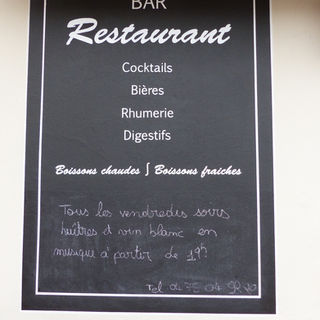 BAR
Restaurant
Cocktails
Bières
Rhumerie
Digestifs
Boissons chaudes ∫ Boissons fraiches
Tous les vendredis soirs
huîtres et vin blanc en
musique à partir de
Tel 04